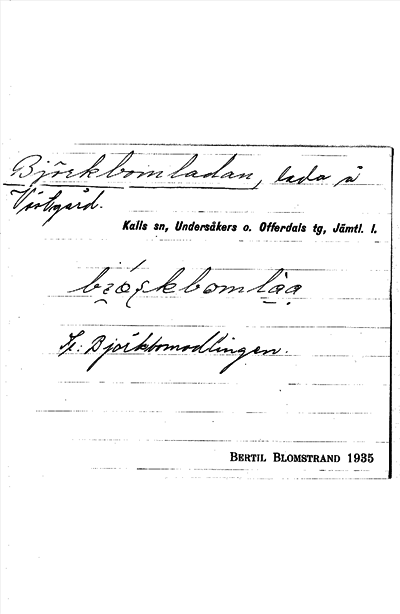 Björkbomladan, lada å
Västgård.
Kalls sn, Undersåkers o. Offerdals tg, Jämtl. l.
Jr: Björkbomodlingen.
BERTIL BLOMSTRAND 1935